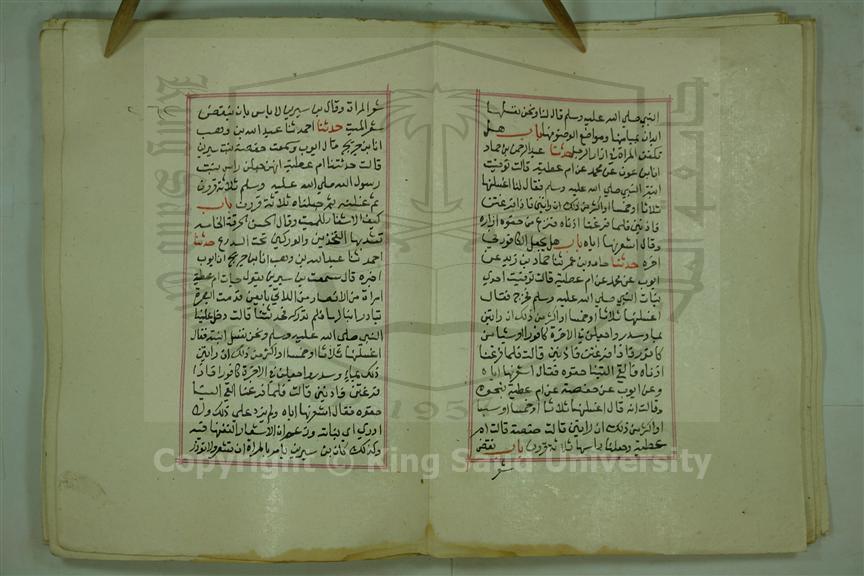 النبي صلى الله عليه وسلم قال لنا ونحن نغسلها
ابدان بميامنها ومواضع الوضوء منها باب هل
تكفن المرأة في ازار الرجل حدثنا عبد الرحمن بن حماد
انا ابن عون عن محمد عن ام عطية قالت توفيت
ابنة النبي صلى الله عليه وسلم فقال لنا اغسلنها
ثلاثا او خمسا او اكثر من ذلك ان رايتن فاذا فرغتن
فاذنني فلما فرغنا اذناه فنزع من حقوه ازاره
وقال اشعرنها اياه باب هل يجعل الكافور في
اخره حدثنا حامد بن عمر ثنا حماد بن زيد عن
ايوب عن محمد عن ام عطية قالت توفيت احدى
بنات النبي صلى الله عليه وسلم فخرج فقال
اغسلنها ثلاثا او خمسا او اكثر من ذلك ان رايتن
بماء وسدر واجعلن في الاخرة كافورا او شيا من
كافور فاذا فرغتن فاذنني قالت فلما فرغنا
اذناه فالقى الينا حقوه فقال اشعرنها اياه
وعن ايوب عن حفصة عن ام عطية بنحوه
وقالت انه قال اغسلنها ثلاثا او خمسا او سبعا
او اكثر من ذلك ان رايتن قالت حفصة قالت ام
عطية وجعلنا راسها ثلاثة قرون باب نقض
شعر
شعر المراة وقال ابن سيرين لا باس بان ينقض
شعر الميت حدثنا احمد ثنا عبد الله بن وهب
انا ابن جريج قال ايوب وسمعت حفصة بنت سيرين
قالت حدثتنا ام عطية انهن جعلن راس بنت
رسول الله صلى الله عليه وسلم ثلاثة قرون
ثم غسلنه ثم جعلناه ثلاثة قرون باب
كيف الاشعار للميت وقال الحسن الخرقة الخامسة
تشد بها الفخذين والوركين تحت الدرع حدثنا
احمد ثنا عبد الله بن وهب انا ابن جريج ان ايوب
اخبره قال سمعت ابن سيرين يقول جاءت ام عطية
امراة من الانصار من اللاتي بايعن قدمت البصرة
تبادر ابنا لها فلم تدركه فحدثتنا قالت دخل علينا
النبي صلى الله عليه وسلم ونحن نغسل ابنته فقال
اغسلنها ثلاثا او خمسا او اكثر من ذلك ان رايتن
ذلك بماء وسدر واجعلن في الاخرة كافورا فاذا
فرغتن فاذنني قالت فلما فرغنا القى الينا
حقوه فقال اشعرنها اياه ولم يزد على ذلك ولا
ادري اي بناته وزعم ان الاشعار الففنها فيه
وكذلك كان ابن سيرين يامر بالمراة ان تشعر ولا تؤزر
Copyright © King Saud University
195